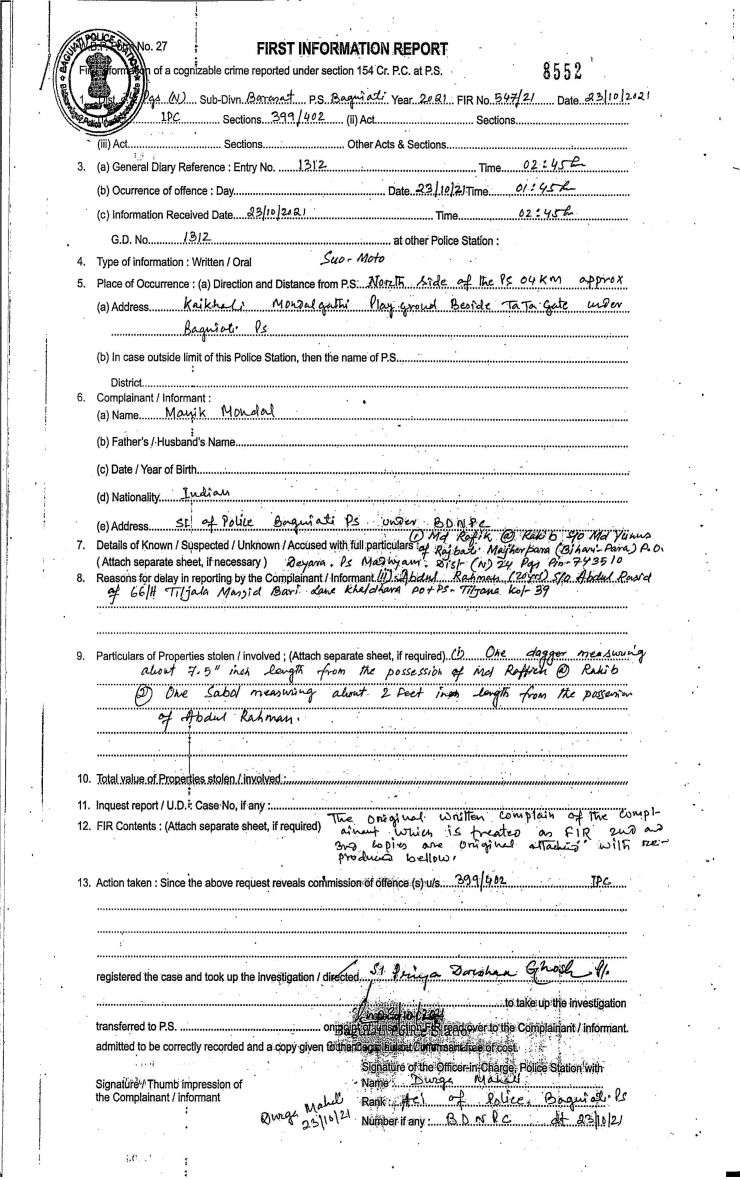 W.B.P. Form No. 27
FIRST INFORMATION REPORT
First Information of a cognizable crime reported under section 154 Cr. P.C. at P.S.
8552
1. Dist. Pgs (N) Sub-Divn. Barasat P.S. Baguiati Year 2021 FIR No. 547/21 Date 23/10/2021
IPC Sections 399/402 (ii) Act Sections
(iii) Act Sections Other Acts & Sections
3. (a) General Diary Reference : Entry No. 1312 Time 02:45h
(b) Ocurrence of offence : Day Date 23/10/21 Time 01:45h
(c) Information Received Date 23/10/2021 Time 02:45h
G.D. No. 1312 at other Police Station :
4. Type of information : Written / Oral Suo-Moto
5. Place of Occurrence : (a) Direction and Distance from P.S: North side of the PS 04 KM approx
(a) Address Kaikhali Mondalgathi Play ground Beside TaTa Gate under
Baguiati Ps
(b) In case outside limit of this Police Station, then the name of P.S.
District
6. Complainant / Informant :
(a) Name Manik Mondal
(b) Father's / Husband's Name
(c) Date / Year of Birth
(d) Nationality Indian
(e) Address SI of Police Baguiati PS under BDNPC
(i) Md Rafik @ Rakib S/o Md Yunus
7. Details of Known / Suspected / Unknown / Accused with full particulars of Rajbati Majherpara (Bihari-Para) P.O.
(Attach separate sheet, if necessary) Deyara. Ps Madhyam. Dist (N) 24 Pgs Pin-743510
8. Reasons for delay in reporting by the Complainant / Informant. (ii) Abdul Rahman (20yrs) S/o Abdul
of 66/H Tiljala Masjid Bari Lane PO+PS- Kol-39
9. Particulars of Properties stolen / involved ; (Attach separate sheet, if required) (1) One dagger measuring
about 7.5" inch length from the possession of md @ Rakib
(2) One Sabol measuring about 2 Feet inch length from the possession
of Abdul Rahman.
10. Total value of Properties stolen / involved :
11. Inquest report / U.D. Case No, if any :
12. FIR Contents : (Attach separate sheet, if required) The original written complain of the compl-
ainant which is treated as FIR 2nd and
3rd copies are original attached with re-
produced bellow.
13. Action taken : Since the above request reveals commission of offence (s) u/s. 399/402 IPC
registered the case and took up the investigation / directed SI Priya Darshan Ghosh
to take up the investigation
transferred to P.S. on point of jurisdiction FIR read over to the Complainant / informant.
admitted to be correctly recorded and a copy given to the free of cost.
Signature of the Officer-in-Charge, Police Station with
Signature / Thumb impression of Name : Durga Mahali
the Complainant / informant Rank : of Police, Baguiati PS
Durga Mahali
23/10/21
Number if any : BDNPC dt 23/10/21